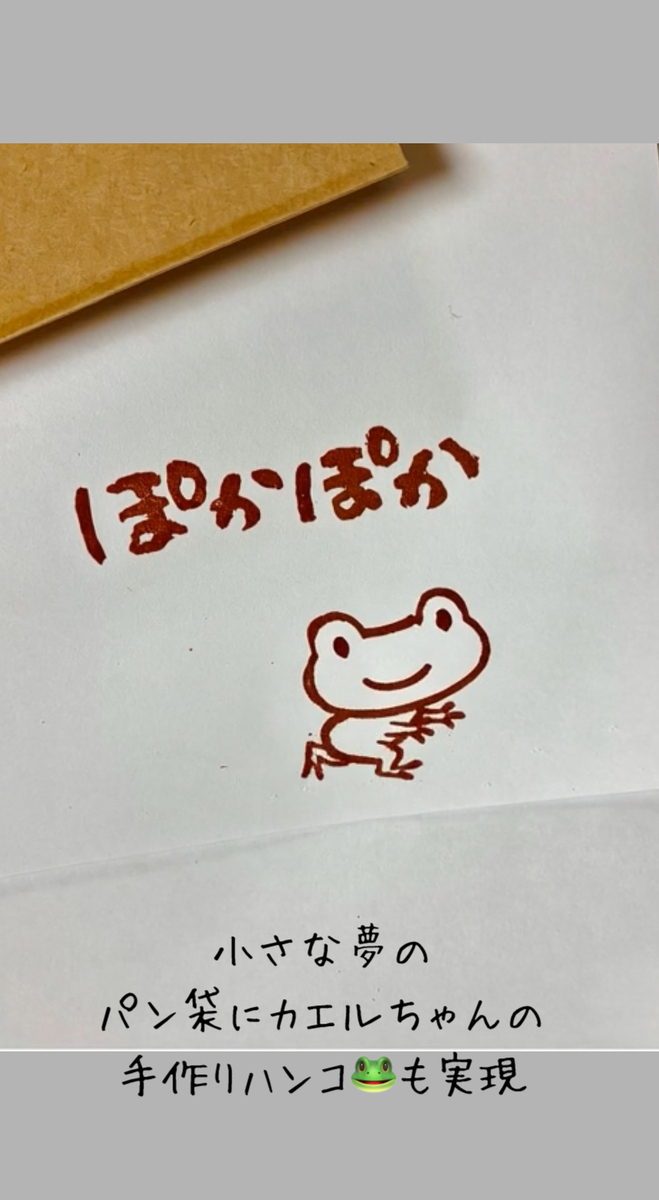 ぽかぽか
小さな夢の
パン袋にカエルちゃんの
手作りハンコ🐸も実現